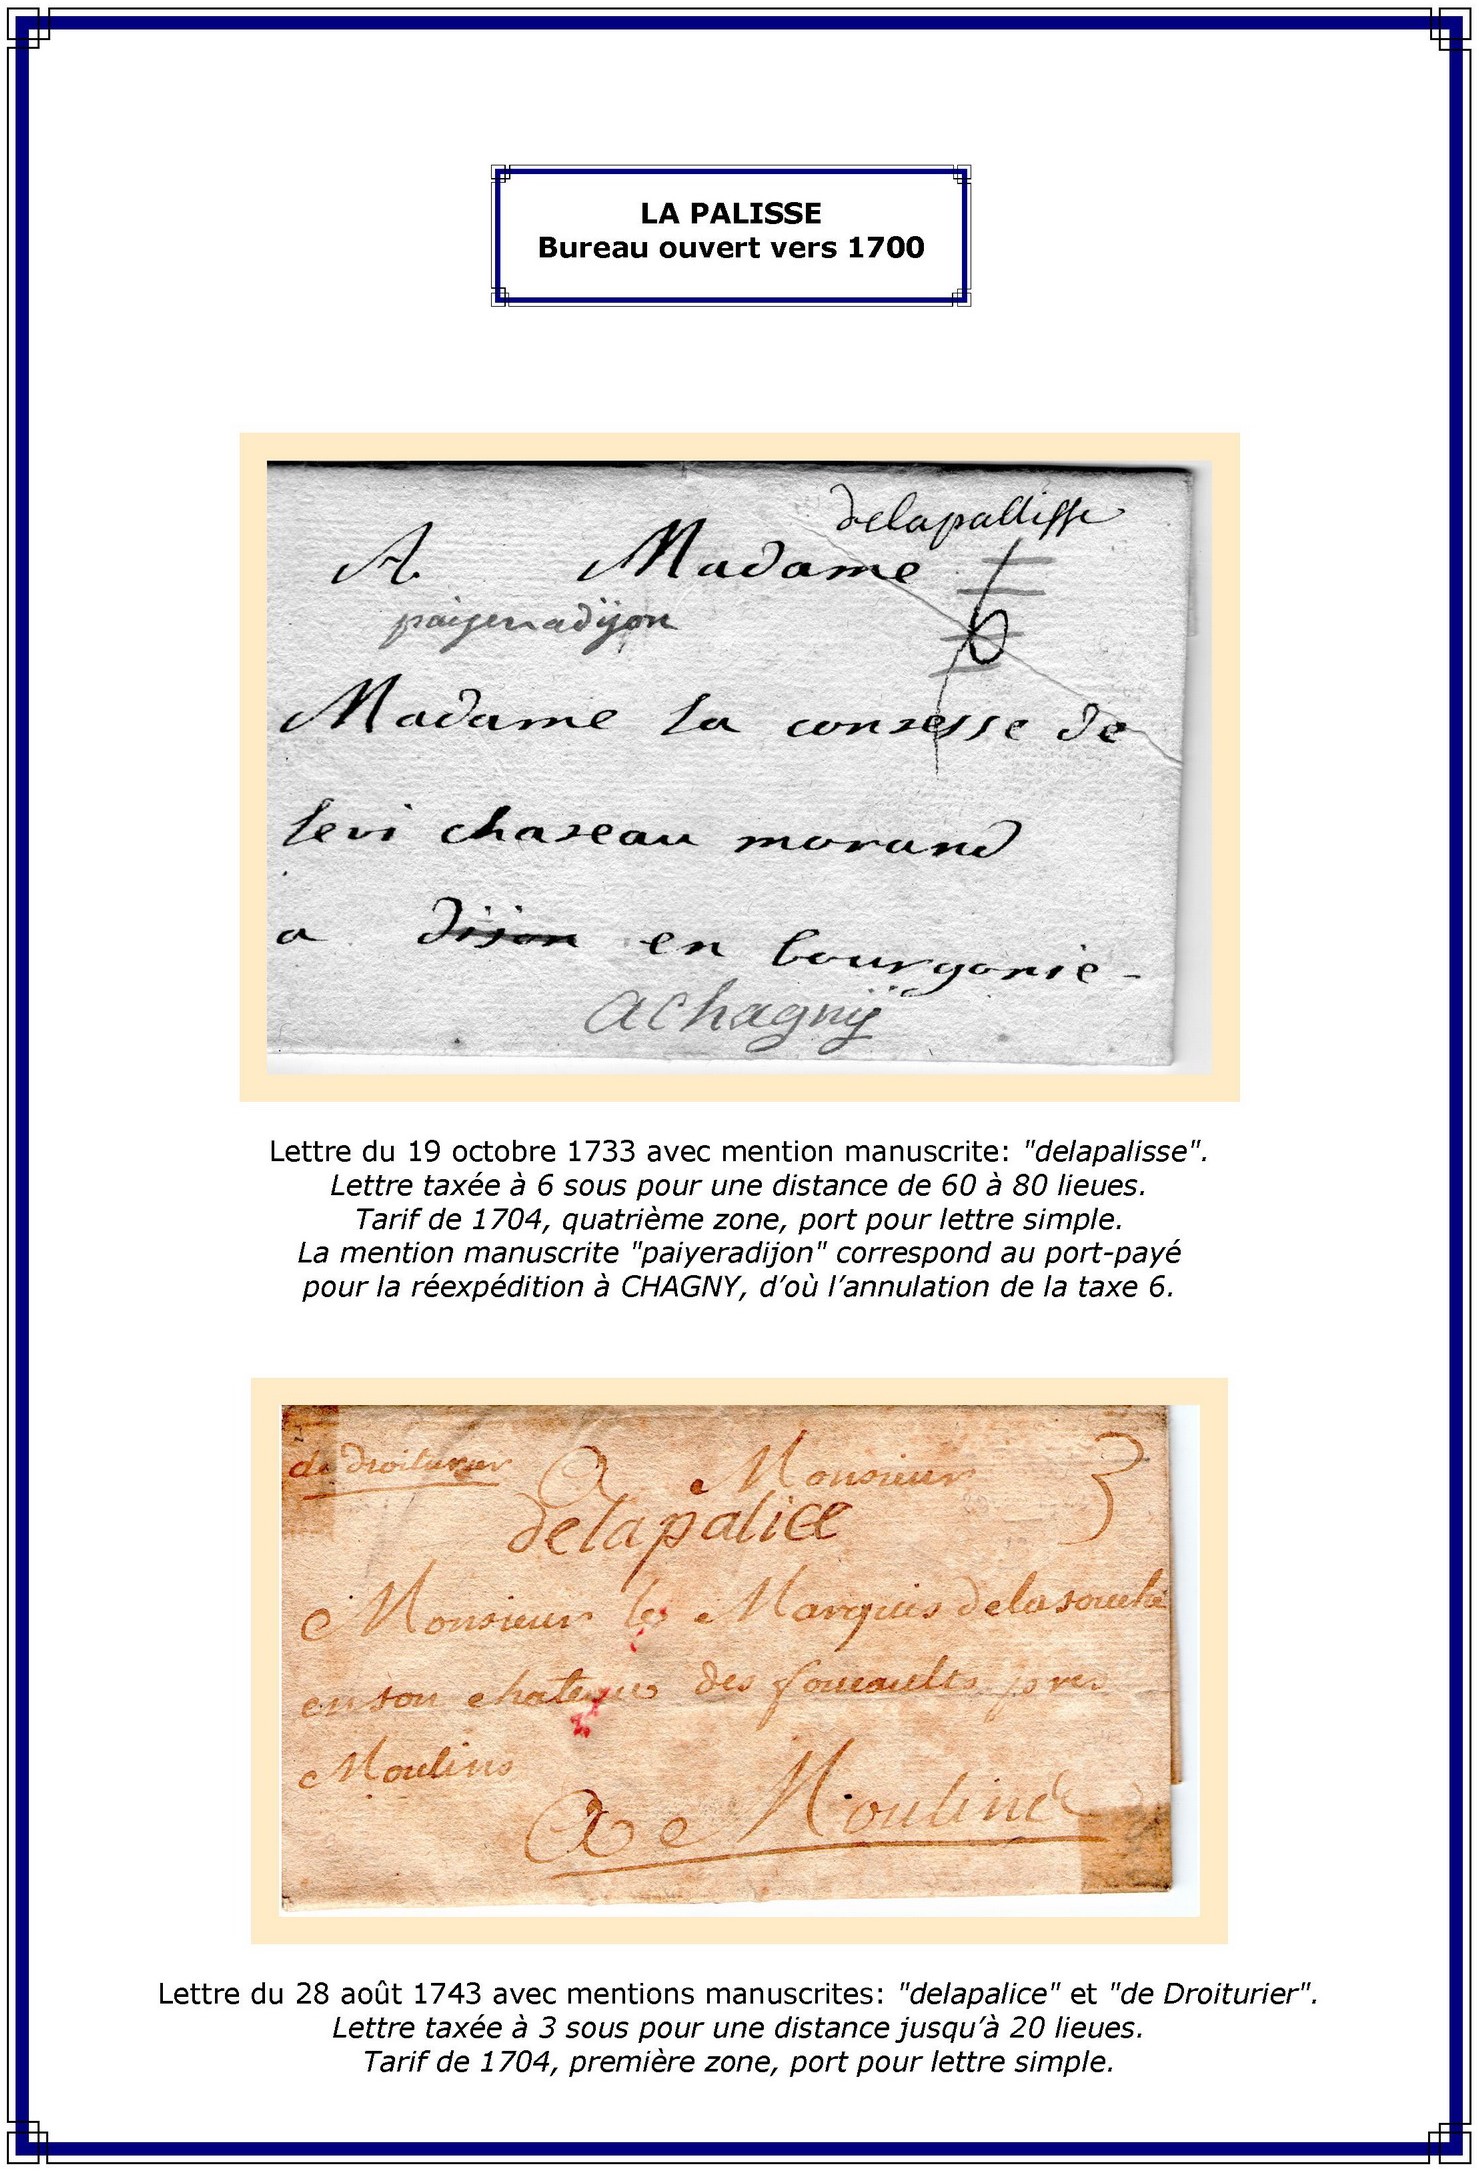 LA PALISSE
Bureau ouvert vers 1700
delapallisse
A Madame
6
paiyeradijon
Madame la contesse de
levi chateau morand
a dijon en bourgonie -
a chagny
Lettre du 19 octobre 1733 avec mention manuscrite: "delapalisse".
Lettre taxée à 6 sous pour une distance de 60 à 80 lieues.
Tarif de 1704, quatrième zone, port pour lettre simple.
La mention manuscrite "paiyeradijon" correspond au port-payé
pour la réexpédition à CHAGNY, d’où l’annulation de la taxe 6.
de Droiturier
A Monsieur 3
delapalice
Monsieur le Marquis
en son chateau des foucaults pres
Moulins
A Moulins
Lettre du 28 août 1743 avec mentions manuscrites: "delapalice" et "de Droiturier".
Lettre taxée à 3 sous pour une distance jusqu’à 20 lieues.
Tarif de 1704, première zone, port pour lettre simple.